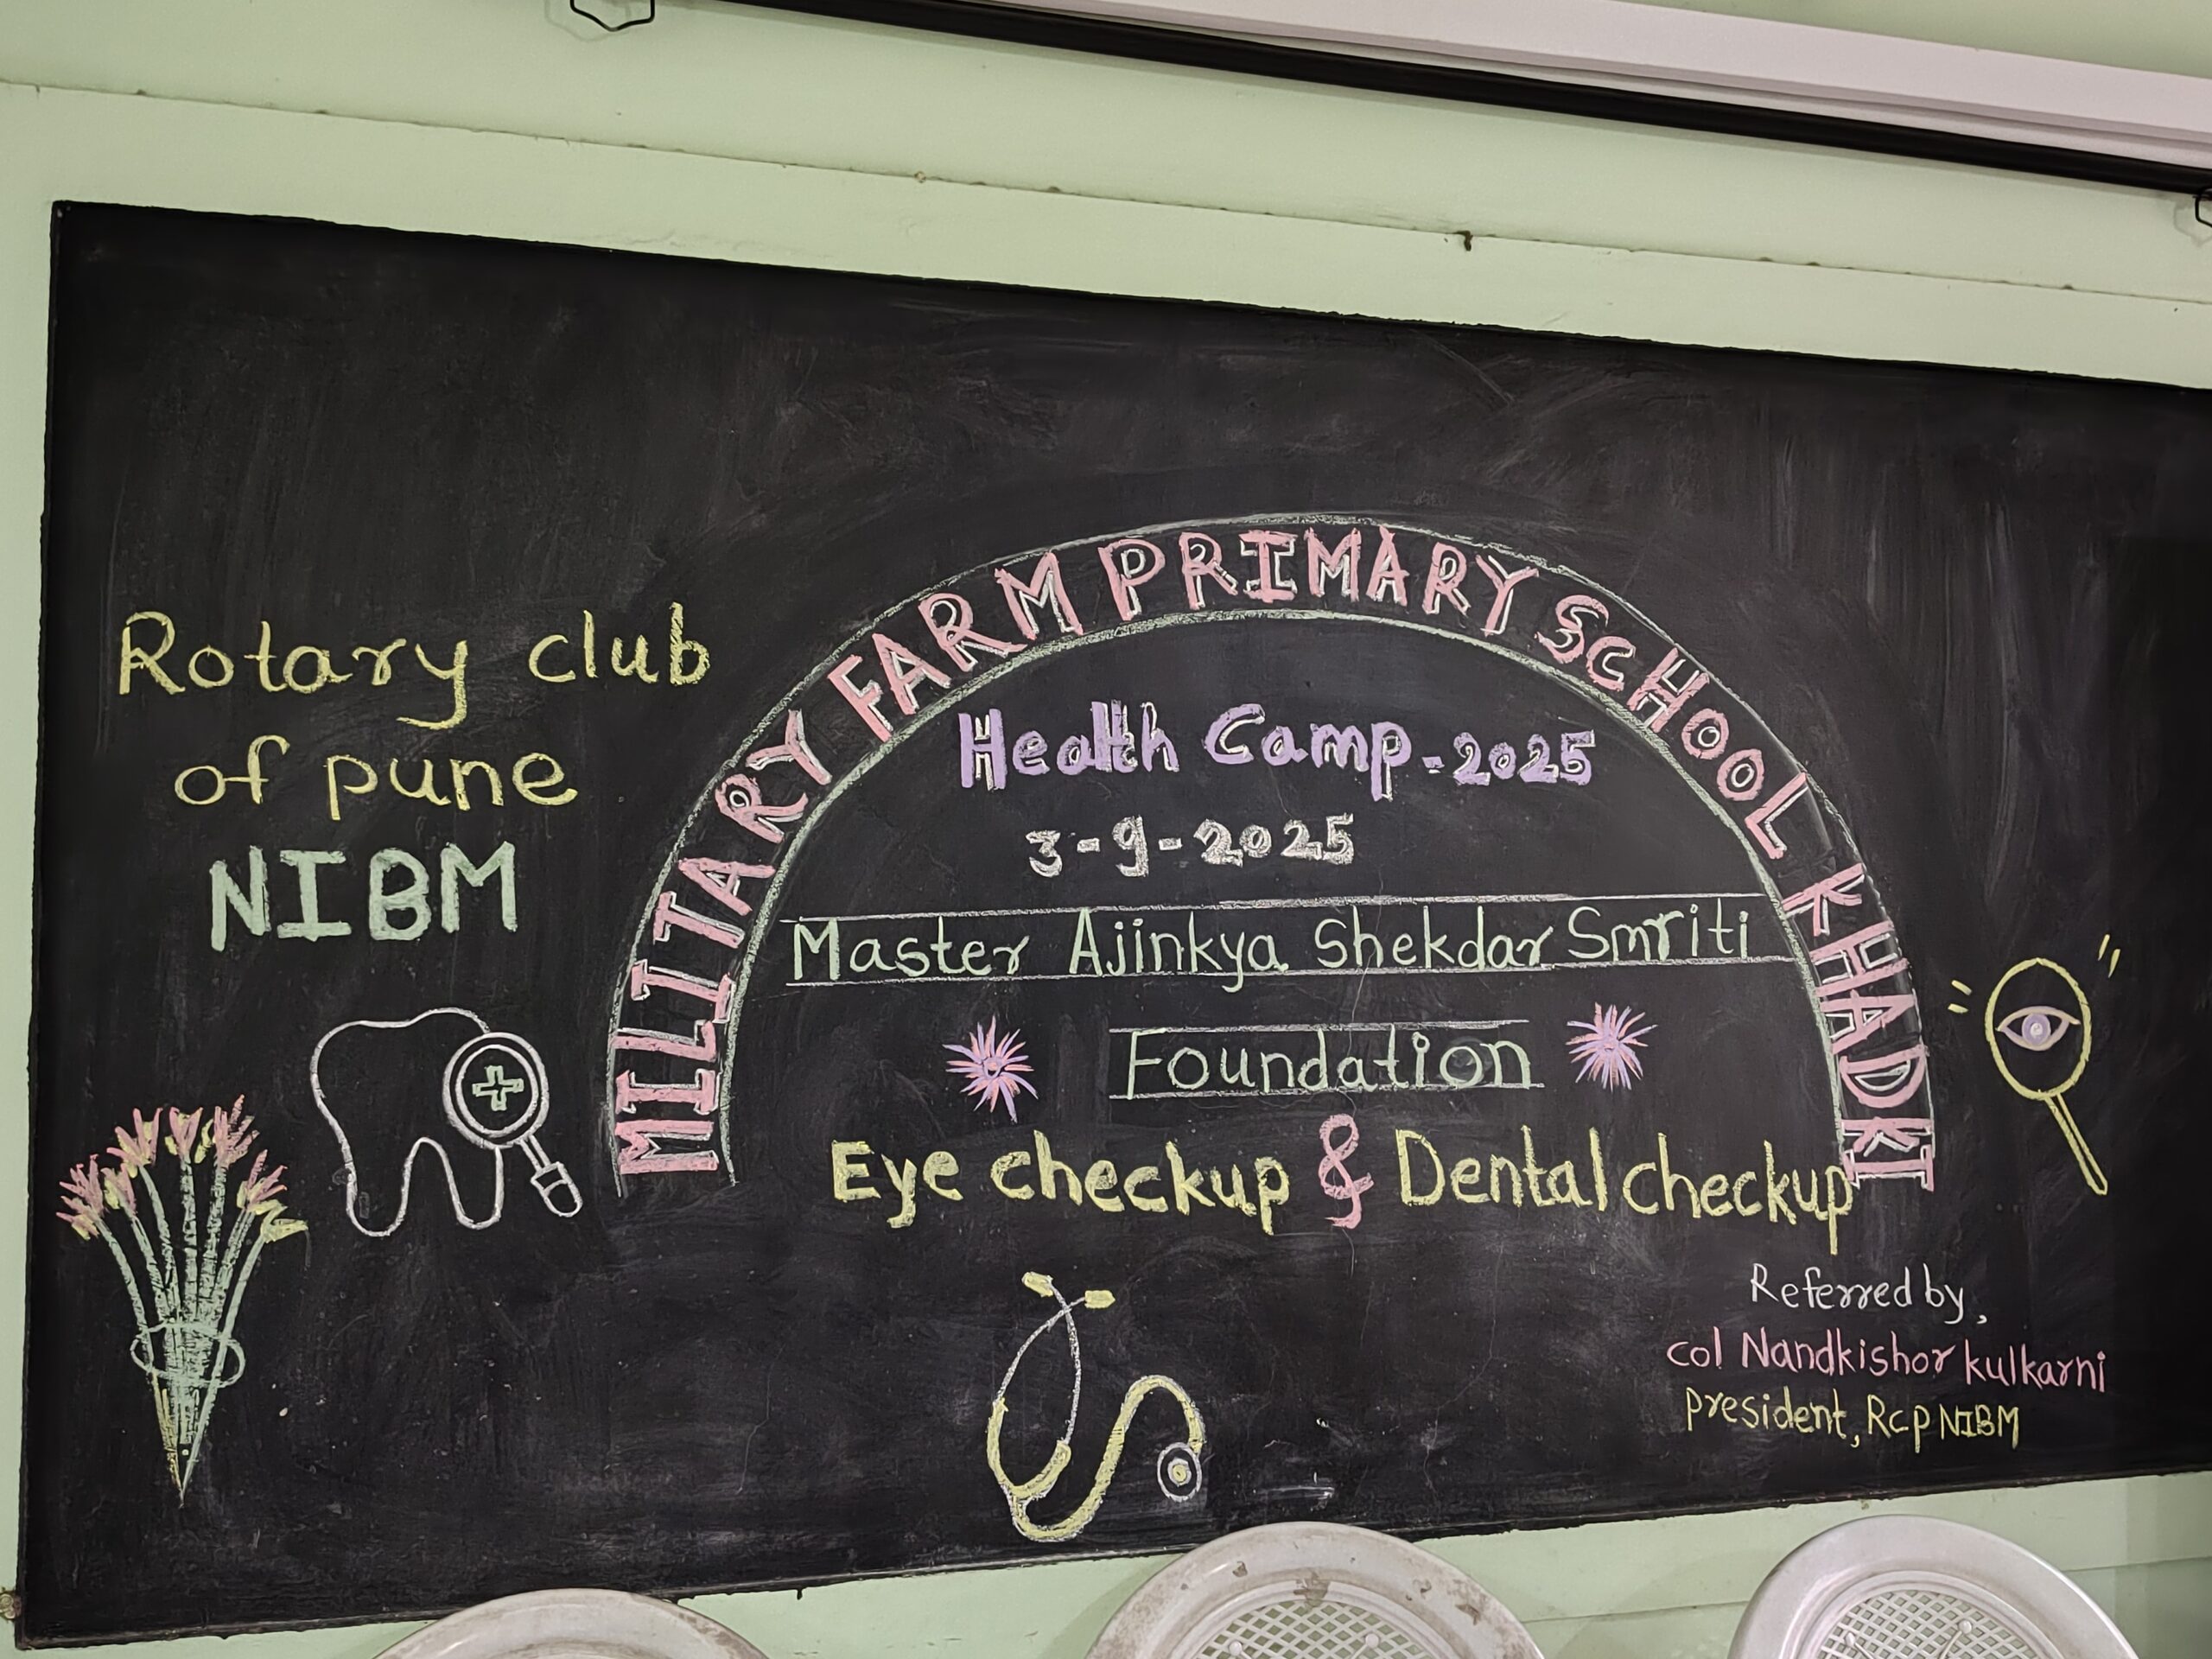 Rotary club
of pune
NIBM
MILITARY FARM PRIMARY SCHOOL KHADKI
Health Camp-2025
3-9-2025
Master Ajinkya Shekdar Smriti
Foundation
Eye checkup & Dental checkup
Referred by,
col Nandkishor kulkarni
president, Rcp NIBM